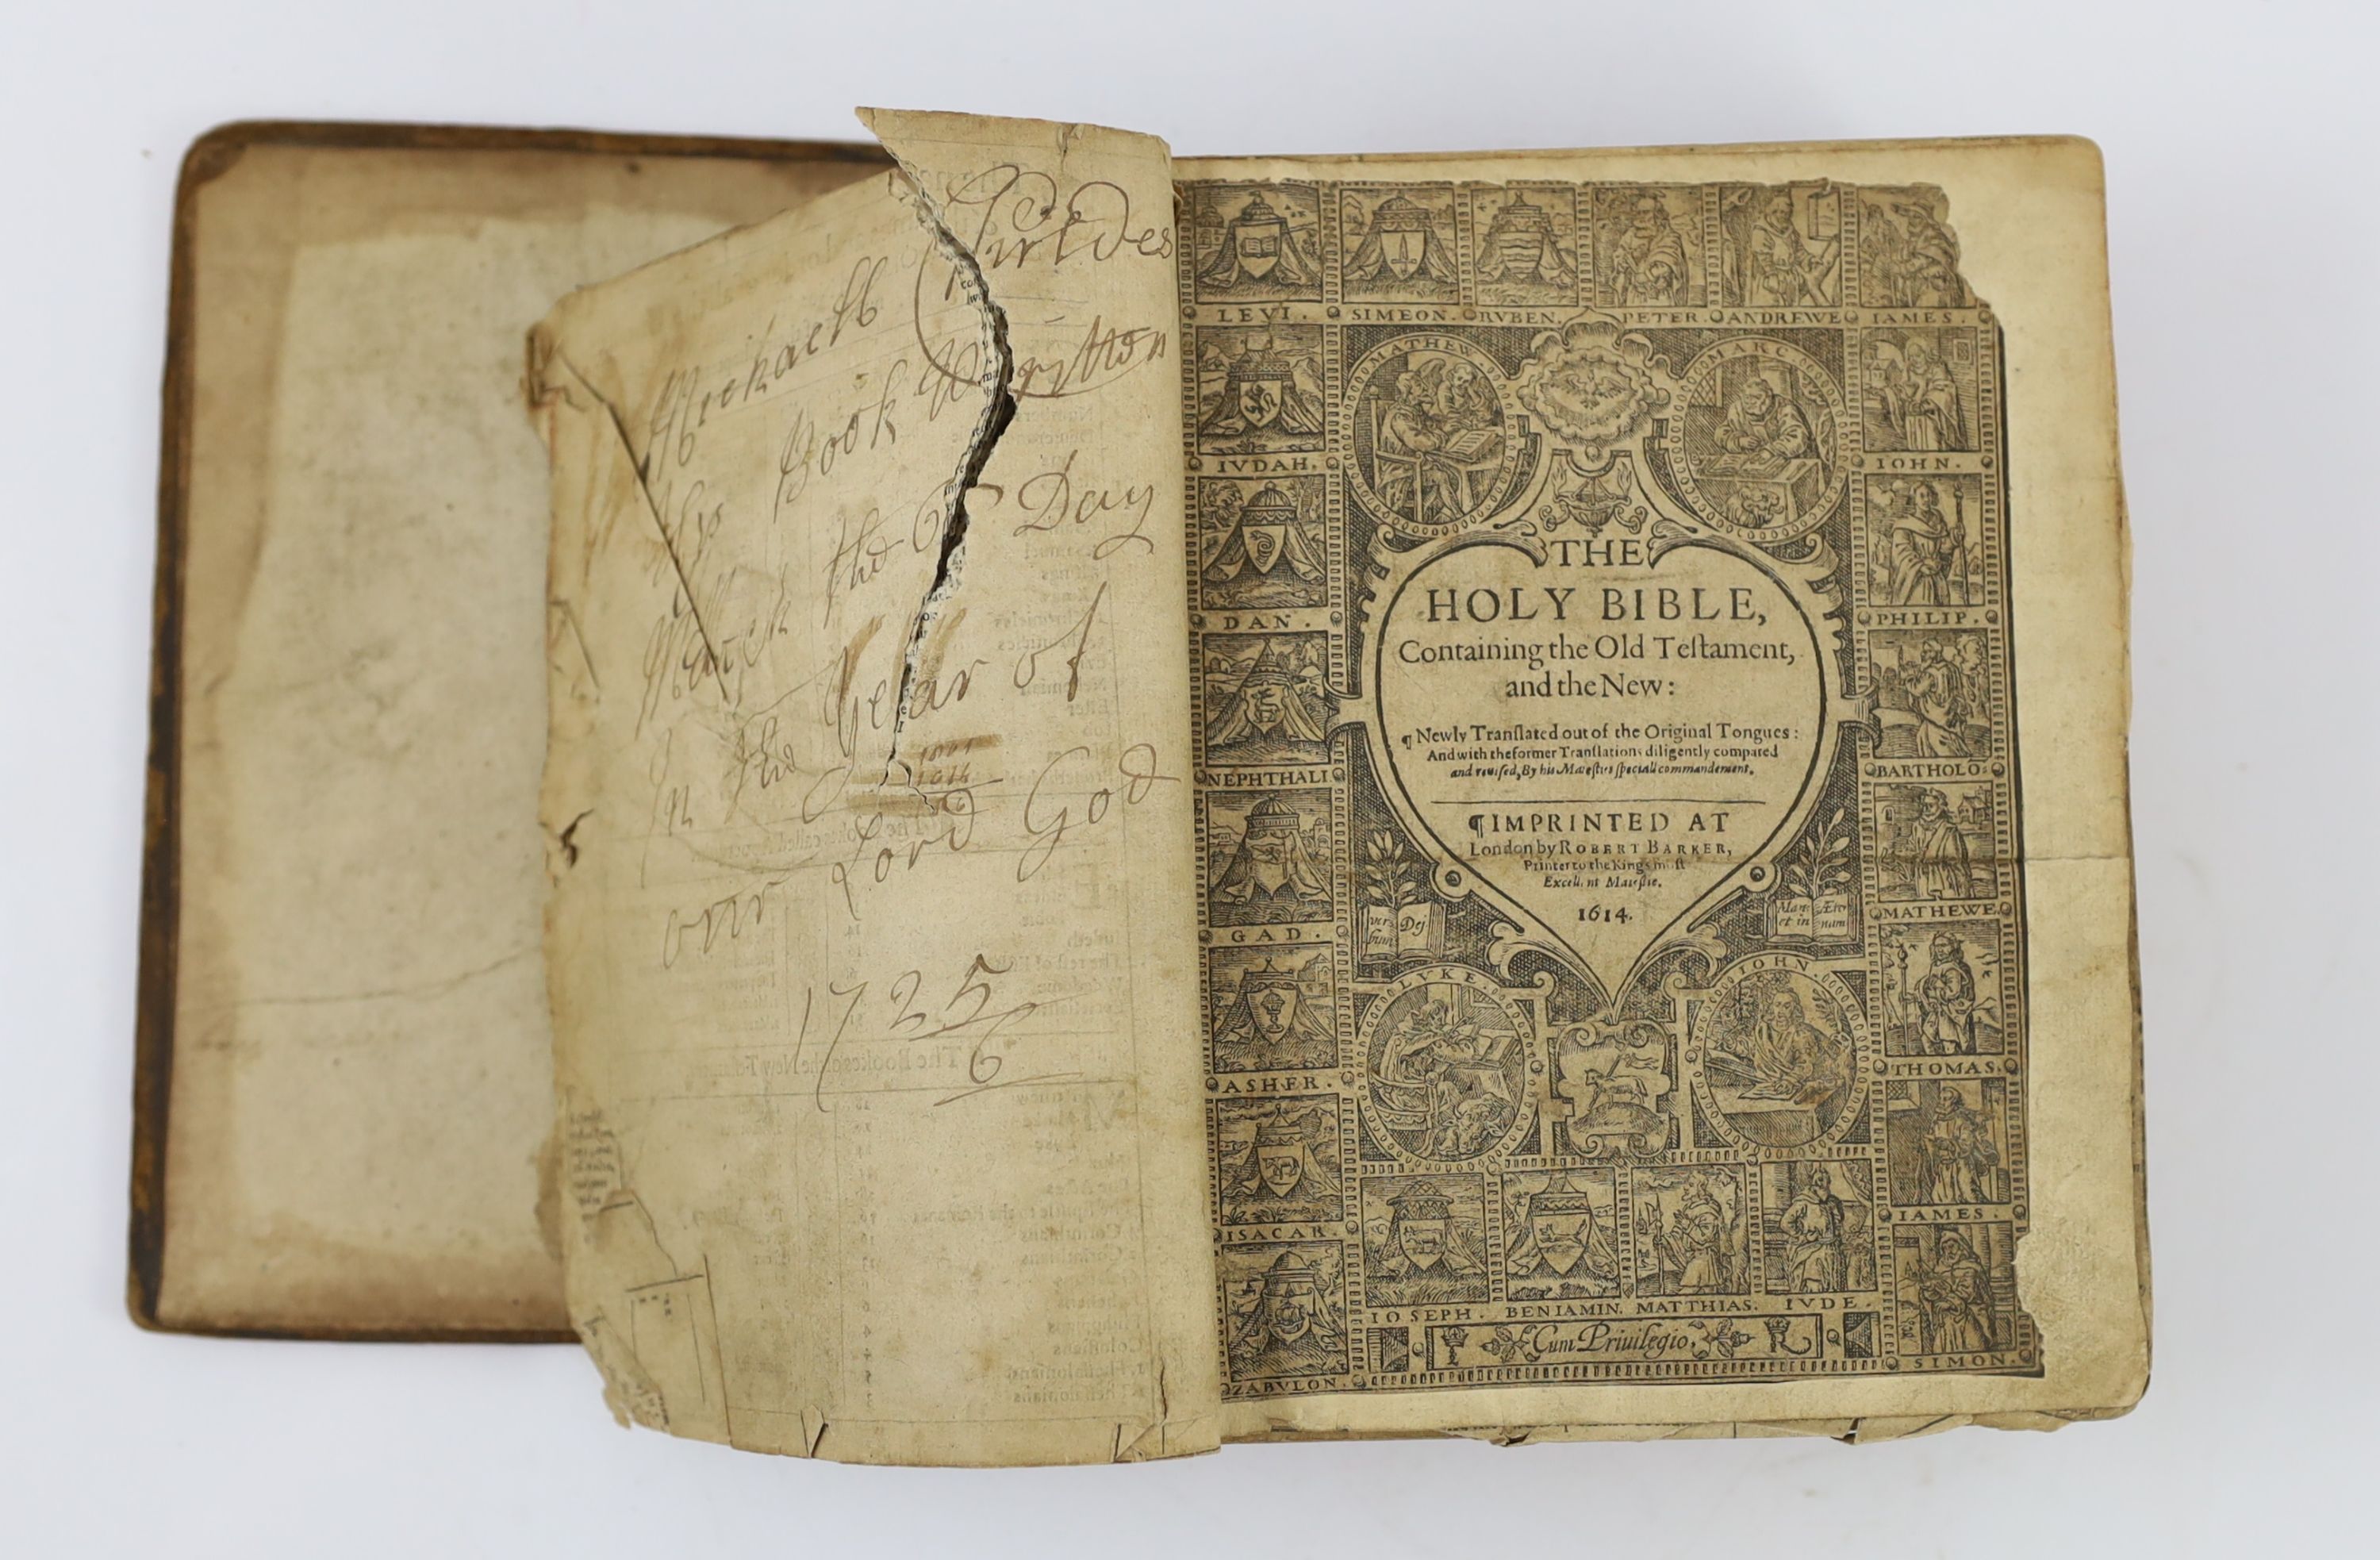 Michaell
his Book Wrytten
March the 6 Day
In the Year of
our Lord God
1725
6
LEVI. SIMEON. RVBEN. PETER. ANDREWE IAMES.
MATHEW. MARC.
IVDAH. IOHN.
DAN. PHILIP.
NEPHTHALI. BARTHOLO:
GAD. MATHEWE.
ASHER. THOMAS.
ISACAR. IAMES.
ZABVLON. SIMON.
THE
HOLY BIBLE,
Containing the Old Teſtament,
and the New:
¶ Newly Tranſlated out of the Original Tongues:
And with the former Tranſlations diligently compared
and reviſed, By his Maieſties ſpeciall commandement.
¶ IMPRINTED AT
London by ROBERT BARKER,
Printer to the Kings moſt
Excellent Maieſtie.
1614.
ver= Dej
bum
Man= Æter
et in num
LVKE. IOHN.
IOSEPH. BENIAMIN. MATTHIAS. IVDE.
Cum Priuilegio.
R